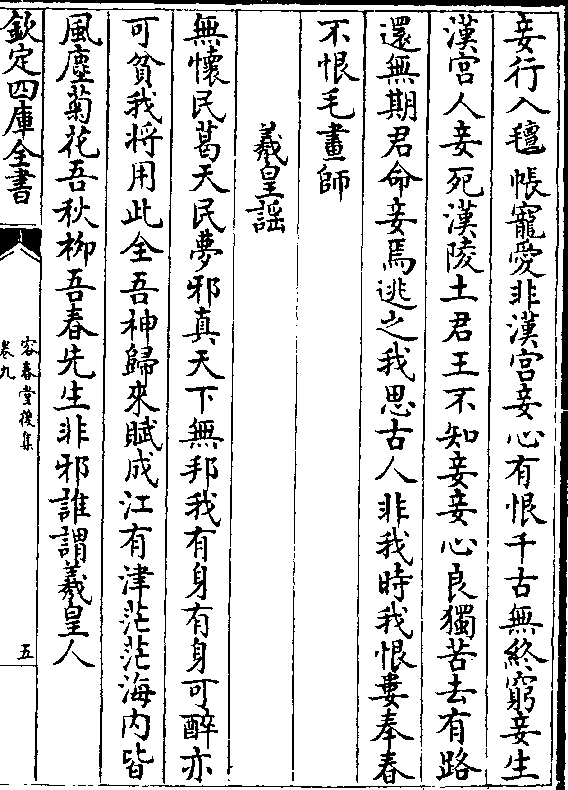 妾行入氊帳寵愛非漢宮妾心有恨千古無終窮妾生
漢宮人妾死漢陵土君王不知妾妾心良獨苦去有路
還無期君命妾焉逃之我思古人非我時我恨婁奉春
不恨毛畫師
羲皇謡
無懷民葛天民夢邪真天下無邦我有身有身可醉亦
可貧我将用此全吾神歸來賦成江有津茫茫海内皆
風塵菊花吾秋栁吾春先生非邪誰謂羲皇人
欽定四庫全書
容春堂後集
卷九
五